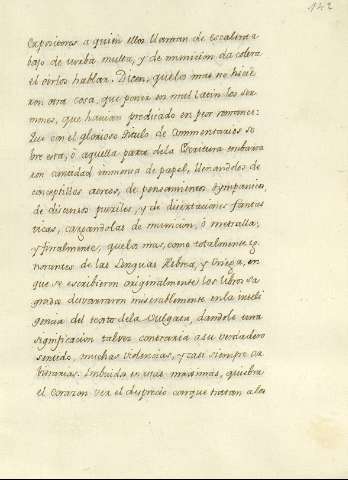 142
Expositores a quien ellos llaman de escalera a
bajo de turba multa, y de munición da colera
el oirlos hablar. Dicen, que los mas no hicie
ron otra cosa, que poner en mal latin los ser
mones, que havian predicado en peor romance:
Que con el glorioso titulo de Commentarios so
bre esta, ò aquella parte dela Escritura embarra
ron cantidad inmensa de papel, llenandolos de
conceptillos aereos, de pensamientos
de discursos pueriles, y de disertaciones fantas
ticas, cargandolas de munición, ò metralla;
y finalmente, que los mas, como totalmente ig
norantes de las Lenguas Hebrea, y Griega, en
que se escribieron originalmente los libros sa
grados desbarraron miserablemente en la inteli
gencia del texto dela Vulgata, dandole una
significacion talvez contraria a su verdadero
sentido, muchas violencias, y casi siempre ar
bitrarias. Imbuidos en estas maximas, quiebra
el corazon ver el desprecio con que tratan a los